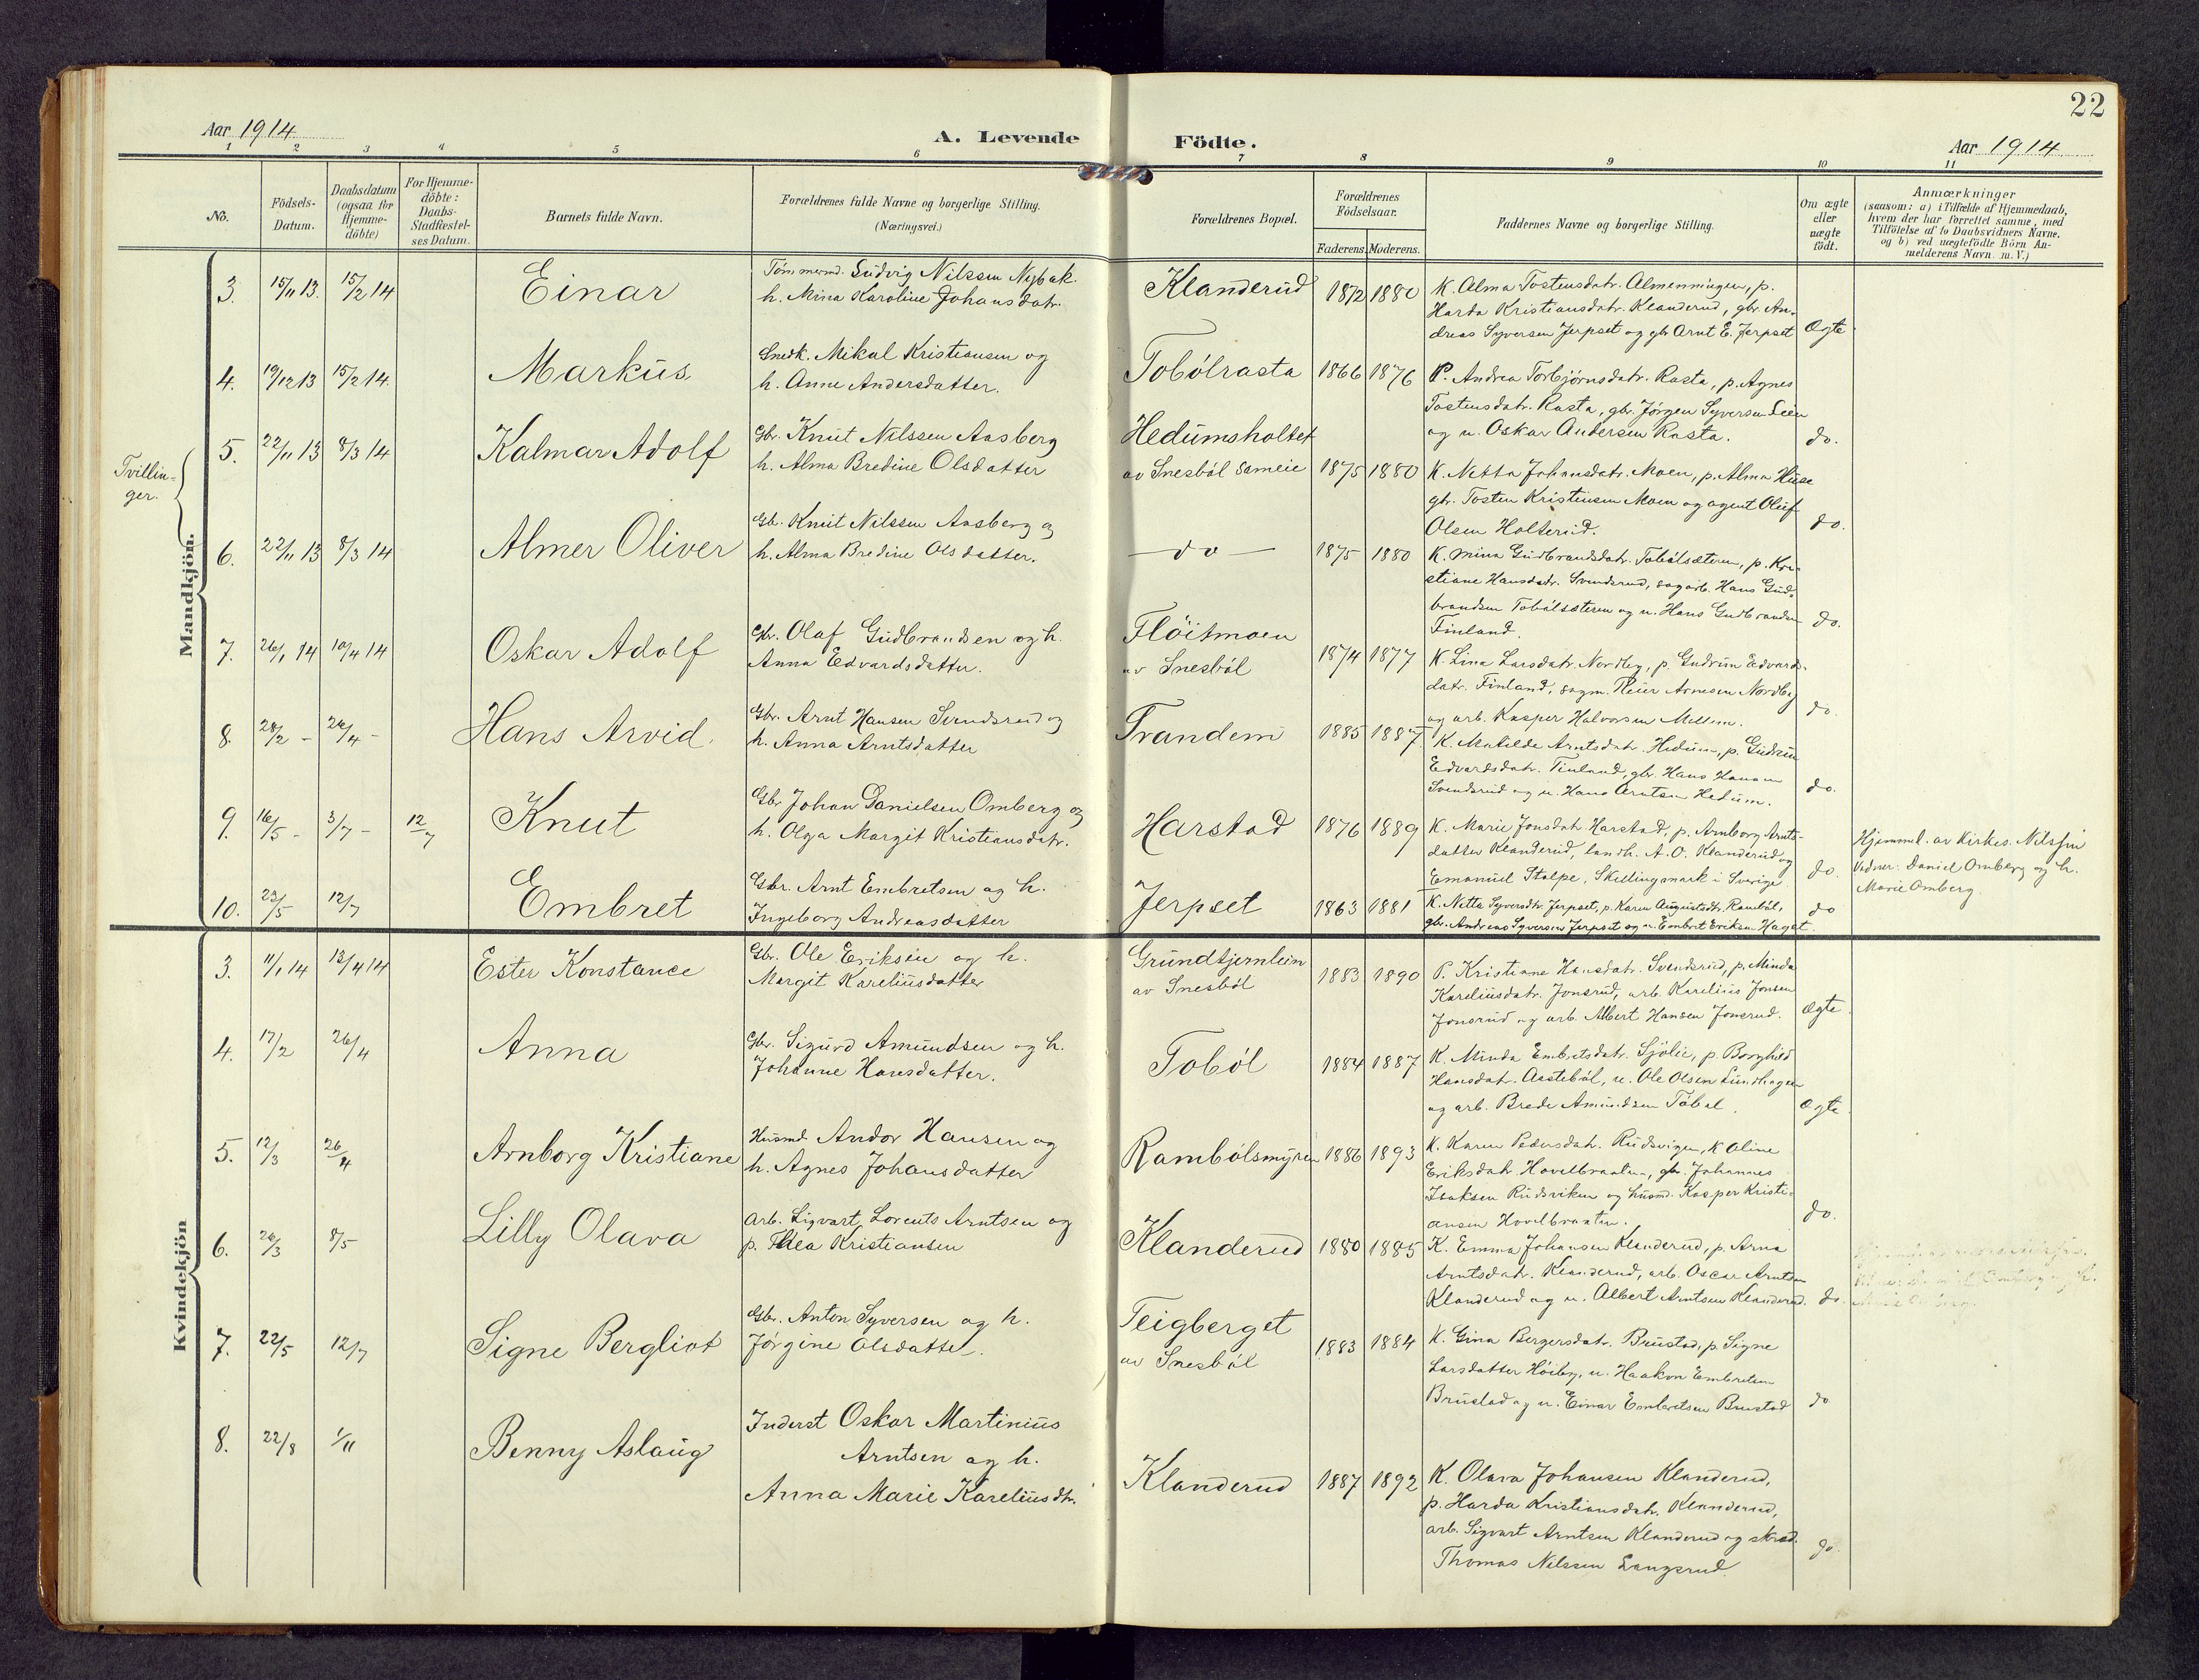 22
Aar 1914
A. Levende
Födte.
Aar 1914
1 2 3 4 5 6 7 8 9 10 11
No.
Födsels-
Datum.
Daabsdatum
(ogsaa for
Hjemme-
döbte)
For Hjemme-
döbte:
Daabs-
Stadfæstel-
ses Datum.
Barnets fulde Navn.
Forældrenes fulde Navne og borgerlige Stilling.
(Næringsvei.)
Forældrenes Bopæl.
Forældrenes
Födselsaar.
Faderens. Moderens.
Faddernes Navne og borgerlige Stilling.
Om ægte
eller
uægte
födt.
Anmærkninger
(saasom: a) i Tilfælde af Hjemmedaab,
hvem der har forrettet samme, med
Tilföielse af to Daabsvidners Navne,
og b) ved uægtefödte Börn An-
melderens Navn m. V.)
Mandkjön.
3. 15/11 13. 15/2 14 Einar
Tømmermd. Ludvig Nilssen Nybak.
h. Mina Karoline Johansdatr.
Klanderud 1872 1880
K. Alma Tostensdatr. Almenningen, p.
Harda Kristiansdatr. Klanderud, gbr. An-
dreas Syversen Jerpset og gbr Arnt E. Jerpset
Ægte
4. 19/12 13 15/2 14. Markus
Snedk. Mikal Kristiansen og
h. Anne Andersdatter.
Tobølrasta 1866 1876
P. Andrea Torbjørnsdatr. Rasta, p. Agnes
Tostensdatr. Rasta, gbr. Jørgen Syversen Lien
og u. Oskar Andersen Rasta.
do.
Tvillin-
ger.
5. 22/11 13 8/3 14 Kalmar Adolf
Gbr. Knut Nilssen Aasberg
h. Alma Bredine Olsdatter
Hedumsholtet
av Snesbøl sameie 1875 1880
K. Netta Johansdatr. Moen, p. Alma Huse
gbr. Tosten Kristiansen Moen og agent Oluf
Olsen Holterud.
do.
6. 22/11 13 8/3 14 Almer Oliver
Gb. Knut Nilssen Aasberg og
h. Alma Bredine Olsdatter.
— do — 1875 1880
K. Mina Gudbrandsdatr. Tobølsæteren, p. Kri-
stiane Hansdatr. Svendsrud, sagarb. Hans Gud-
brandsen Tobølsæteren og u. Hans Gudbrandsen
Finland.
do.
7. 26/1 14 10/4 14 Oskar Adolf
Gbr. Olaf Gudbrandsen og h.
Anna Edvardsdatter.
Fløitmoen
av Snesbøl 1874 1877
K. Lina Larsdatr. Nordby, p. Gudrun Edvards-
datr. Finland, sagm. Peter Arnesen Nordby
og arb. Kasper Halvorsen Mellem.
do.
8. 28/2 - 26/4 - Hans Arvid.
Gbr. Arnt Hansen Svendsrud og
h. Anna Arntsdatter
Trandem 1885 1887
K. Matilde Arntsdatr. Hedum, p. Gudrun
Edvardsdatr. Finland, gbr. Hans Hansen
Svendsrud og u. Hans Arntsen Hedum.
do.
9. 16/5 - 3/7 - 12/7 Knut
Gbr Johan Danielsen Omberg og
h. Olga Margit Kristiansdatr.
Harstad 1876 1889
K. Marie Jonsdatr Harstad, p. Arnborg Arnts-
datter Klanderud, landh. A. O. Klanderud og
Emanuel Stolpe, Skillingmark i Sverige
do.
Hjemmed. av Kirkes. Nilssen
Vidner: Daniel Omberg og h.
Marie Omberg.
10. 23/5 12/7 Embret
Gbr. Arnt Embretsen og h.
Ingeborg Andreasdatter
Jerpset 1863 1881
K. Netta Syversdtr. Jerpset, p. Karen Augustsdtr. Rambøl,
gbr. Andreas Syversen Jerpset og u. Embret Eriksen Haget.
do
Kvindekjön
3. 11/1 14 13/4 14 Ester Konstance
Gbr. Ole Eriksen og h.
Margit Kareliusdatter
Grundtjernlien
av Snesbøl 1883 1890
P. Kristiane Hansdatr. Svendsrud, p. Minda
Kareliusdatr. Jonsrud, arb. Karelius Jonsen
Jonsrud og arb. Albert Hansen Jonsrud.
Ægte
4. 17/2 26/4 Anna
Gbr. Sigurd Amundsen og h.
Johanne Hansdatter.
Tobøl 1884 1887
K. Minda Embretsdatr. Sjølie, p. Borghild
Hansdatr. Aastebøl, u. Ole Olsen Lundhagen
og arb. Brede Amundsen Tobøl.
Ægte.
5. 12/3 26/4 Arnborg Kristiane
Husmd. Andor Hansen og
h. Agnes Johansdatter
Rambølsmyren 1886 1893
K. Karen Pedersdatr. Rudsvigen, K Oline
Eriksdatr. Hovelbraaten, gbr. Johannes
Isaksen Rudsviken og husmd. Kasper Kristi-
ansen Hovelbraaten.
do.
6. 26/3 8/5 Lilly Olava
Arb. Sigvart Lorents Arntsen og
p. Thea Kristiansen
Klanderud 1880 1885
K. Emma Johansen Klanderud, p. Arna
Arntsdatr. Klanderud, arb. Oscar Arntsen
Klanderud og u. Albert Arntsen Klanderud.
do.
7. 22/5 12/7 Signe Bergliot
Gbr. Anton Syversen og h.
Jørgine Olsdatter.
Teigberget
av Snesbøl 1883 1884
K. Gina Bergersdatr. Brustad, p. Signe
Larsdatter Høiby, u. Haakon Embretsen
Brustad og u. Einar Embretsen Brustad
do
8. 22/8 1/11 Benny Aslaug
Inderst Oskar Martinius
Arntsen og h.
Anna Marie Kareliusdtr.
Klanderud 1887 1892
K. Olava Johansen Klanderud,
p. Harda Kristiansdatr. Klanderud,
arb. Sigvart Arntsen Klanderud og skræd.
Thomas Nilssen Langsrud.
do.